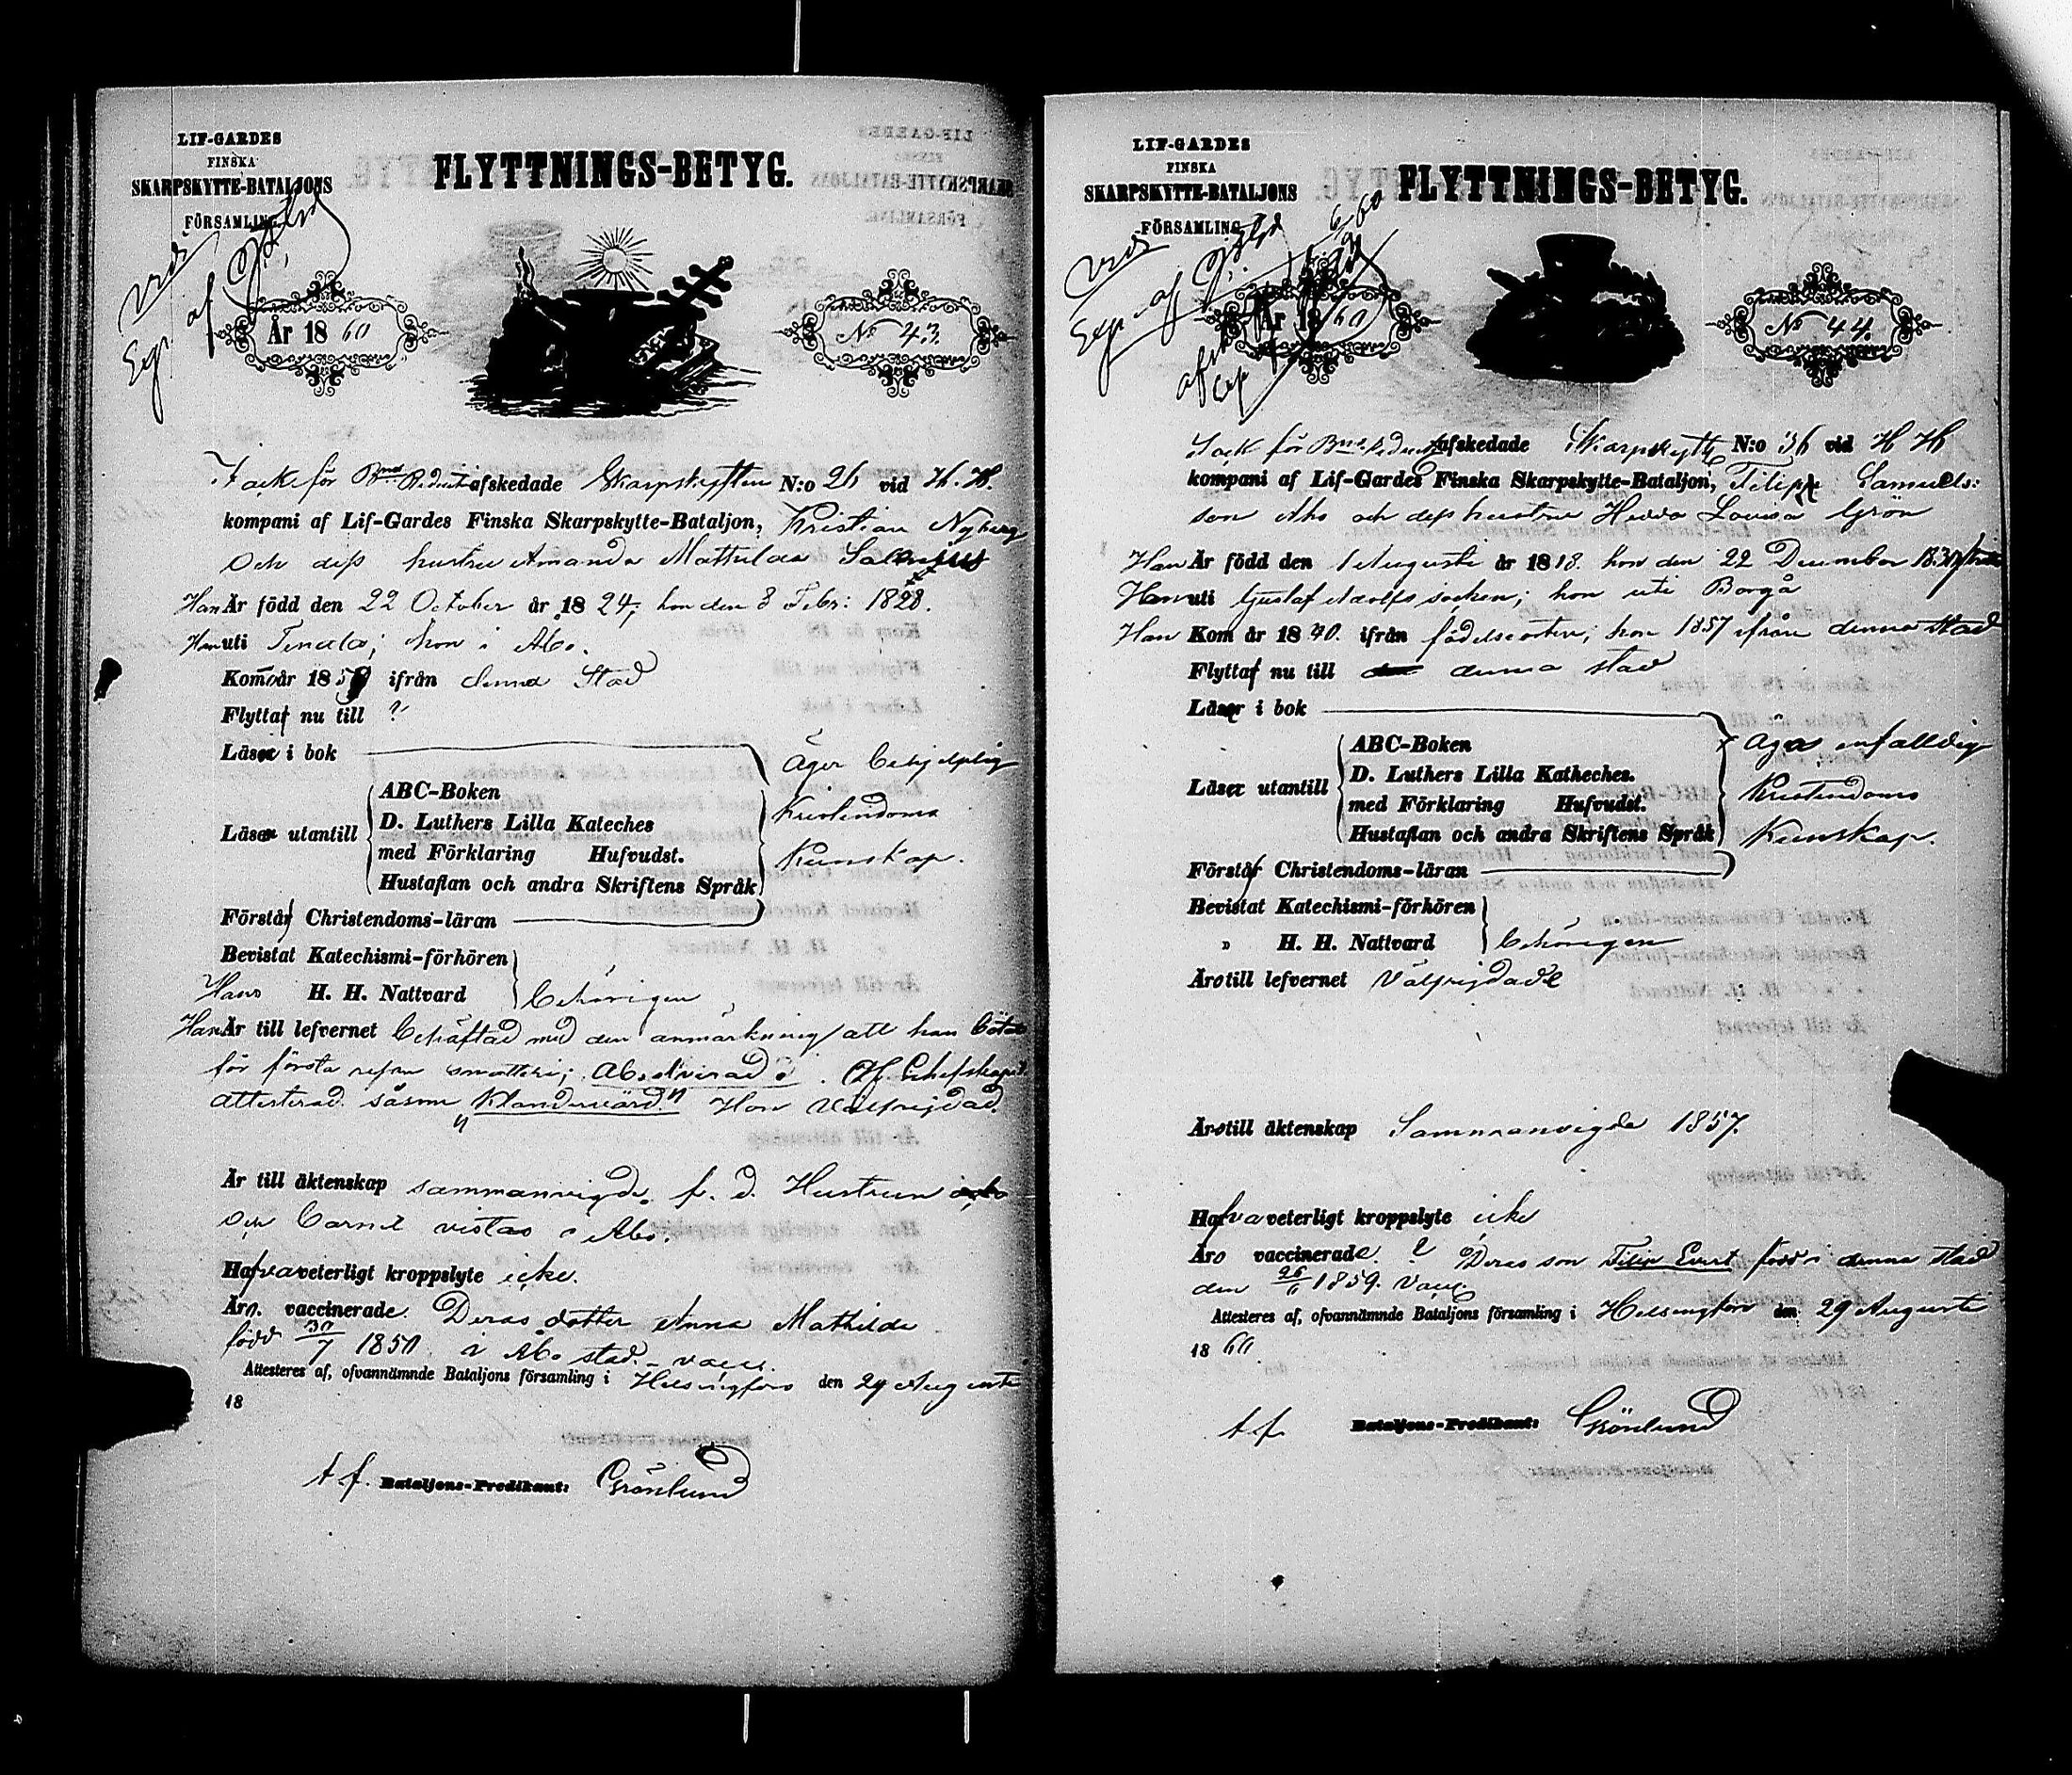 LIF-GARDES
FINSKA
SKARPSKYTTE-BATALJONS
FÖRSAMLING.
FLYTTNINGS-BETYG.
År 18 60
No 43.
för afskedade Skarpskytten N:o 26 vid H. H.
kompani af Lif-Gardes Finska Skarpskytte-Bataljon, Kristian Nyberg
och dess hustru Amanda Mathilda
Han Är född den 22 October år 18 24; hon den 8 Febr: 1828.
Han uti Tenala; hon i Åbo.
Kom år 18 ifrån denna Stad
Flytta nu till ?
Läser i bok
äger behjelplig
ABC-Boken
Läser utantill
D. Luthers Lilla Kateches
Kristendoms
med Förklaring Hufvudst.
Kunskap.
Hustaflan och andra Skriftens Språk
Förstår Christendoms-läran
Bevistat Katechismi-förhören
H. H. Nattvard behörigen
Han Är till lefvernet behäftad med den anmärkning att han
för första resan snatteri; Absolverad.
attesterad såsom "Klandervärd". Hon Välfrejdad.
Är till äktenskap sammanvigde. f. d. Hustrun
och barnet vistas i Åbo.
Hafva veterligt kroppslyte icke.
Äro vaccinerade. Deras dotter Anna Mathilda
född 30/7 1850 i Åbo stad. – vacc.
Attesteres af, ofvannämnde Bataljons församling i Helsingfors den 29 Augusti
18
t. f. Bataljons-Predikant: Grönlund
LIF-GARDES
FINSKA
SKARPSKYTTE-BATALJONS
FÖRSAMLING.
FLYTTNINGS-BETYG.
År 18 60
No 44.
för afskedade Skarpskytt N:o 36 vid H H
kompani af Lif-Gardes Finska Skarpskytte-Bataljon, Filip Samuels:
son Aho och dess hustru Hedda Lovisa Grön
Han Är född den 1 Augusti år 18 18. hon den 22 December
Han uti Gustaf Adolfs socken; hon uti Borgå
Han Kom år 18 40. ifrån födelseorten; hon 1857 ifrån denna stad
Flytta nu till denna stad
Läser i bok
ABC-Boken
Äga enfalldig
Läser utantill
D. Luthers Lilla Katheches.
Kristendoms
med Förklaring Hufvudst.
Hustaflan och andra Skriftens Språk
Kunskap.
Förstår Christendoms-läran
Bevistat Katechismi-förhören
" H. H. Nattvard behörigen
Äro till lefvernet Välfrejdade
Äro till äktenskap Sammanvigde 1857.
Hafva veterligt kroppslyte icke
Äro vaccinerade. Deras son Filip Evert född i denna stad
den 26/6 1859. Vacc.
Attesteres af, ofvannämnde Bataljons församling i Helsingfors den 29 Augusti
18 60
t. f. Bataljons-Predikant: Grönlund